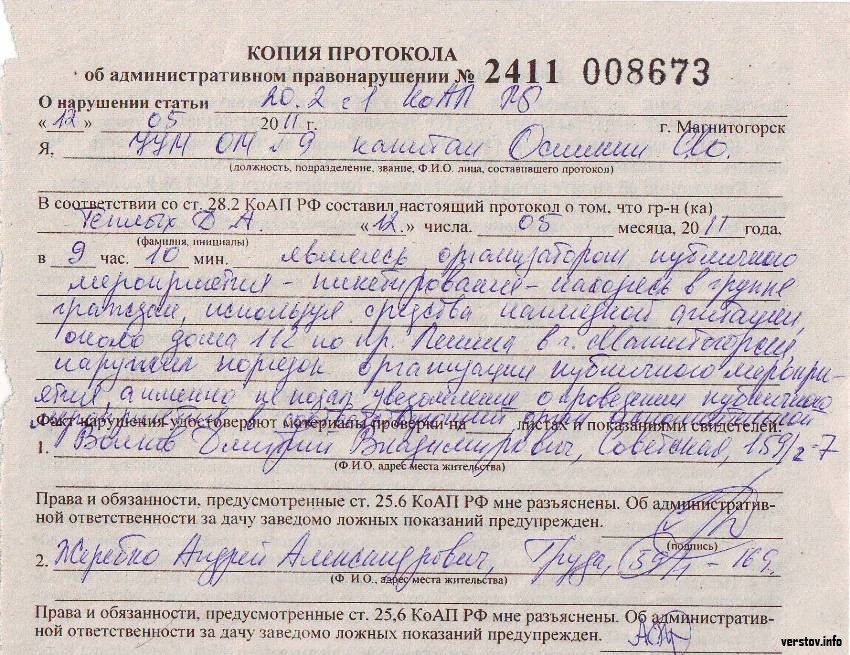 КОПИЯ ПРОТОКОЛА
об административном правонарушении № 2411 008673
О нарушении статьи 20.2 ч 1 КоАП РФ
«12» 05 2011 г. г. Магнитогорск
Я, УУМ ОМ №9 капитан
(должность, подразделение, звание, Ф.И.О. лица, составившего протокол)
В соответствии со ст. 28.2 КоАП РФ составил настоящий протокол о том, что гр-н (ка)
Теплых Д А. «12.» числа. 05 месяца, 2011 года,
(фамилия, инициалы)
в 9 час. 10 мин. являясь организатором публичного
мероприятия - пикетирования - находясь в группе
граждан, используя средства наглядной агитации,
около дома 112 по пр. Ленина в г. Магнитогорске,
нарушил порядок организации публичного меропри-
ятия а именно не подал уведомление о проведении публичного
мероприятия в орган исполнительной
Факт нарушения удостоверяют материалы проверки на листах и показаниями свидетелей:
1. Дмитрий Владимирович, Советская, 159/2-7
(Ф.И.О, адрес места жительства)
Права и обязанности, предусмотренные ст. 25.6 КоАП РФ мне разъяснены. Об административ-
ной ответственности за дачу заведомо ложных показаний предупрежден.
(подпись)
2. Жеребко Андрей Александрович, Труда,
(Ф. И.О., адрес места жительства)
Права и обязанности, предусмотренные ст. 25,6 КоАП РФ мне разъяснены. Об административ-
ной ответственности за дачу заведомо ложных показаний предупрежден.
verstov.info